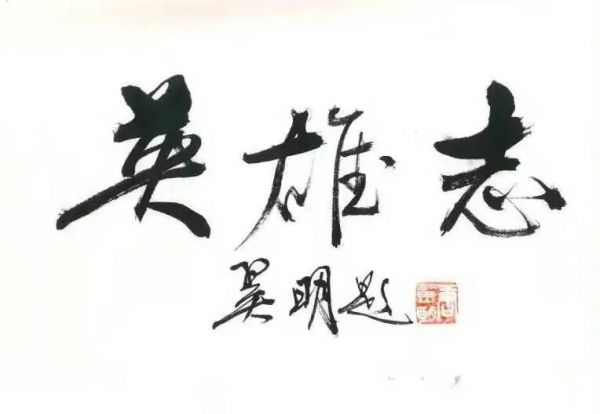 英雄志
明题